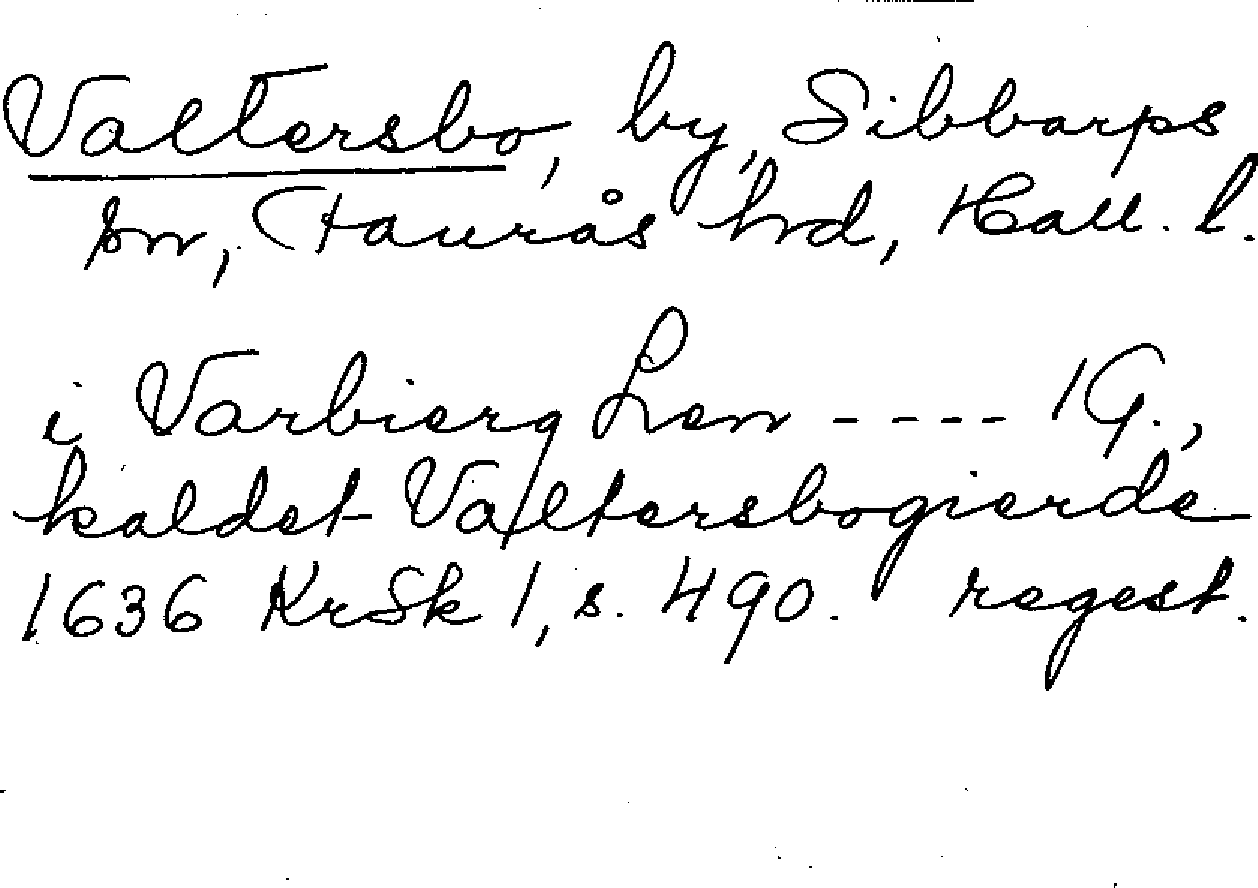 Valtersbo, by, Sibbarps
sn, Faurås hrd, Hall. l.
i Varbierg Len ---- 1 G.,
kaldet Valtersbogierde
1636 KrSk 1, s. 490. regest.